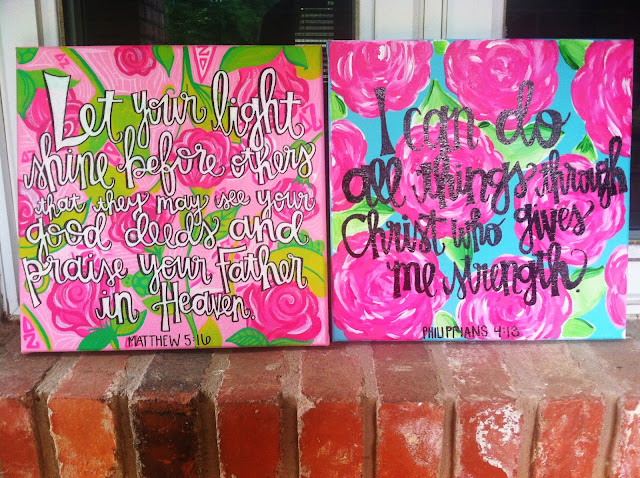 Let your light
shine before others
that they may see your
good deeds and
praise your Father
in Heaven.
MATTHEW 5:16
I can do
all things through
Christ who gives
me strength.
PHILIPPIANS 4:13